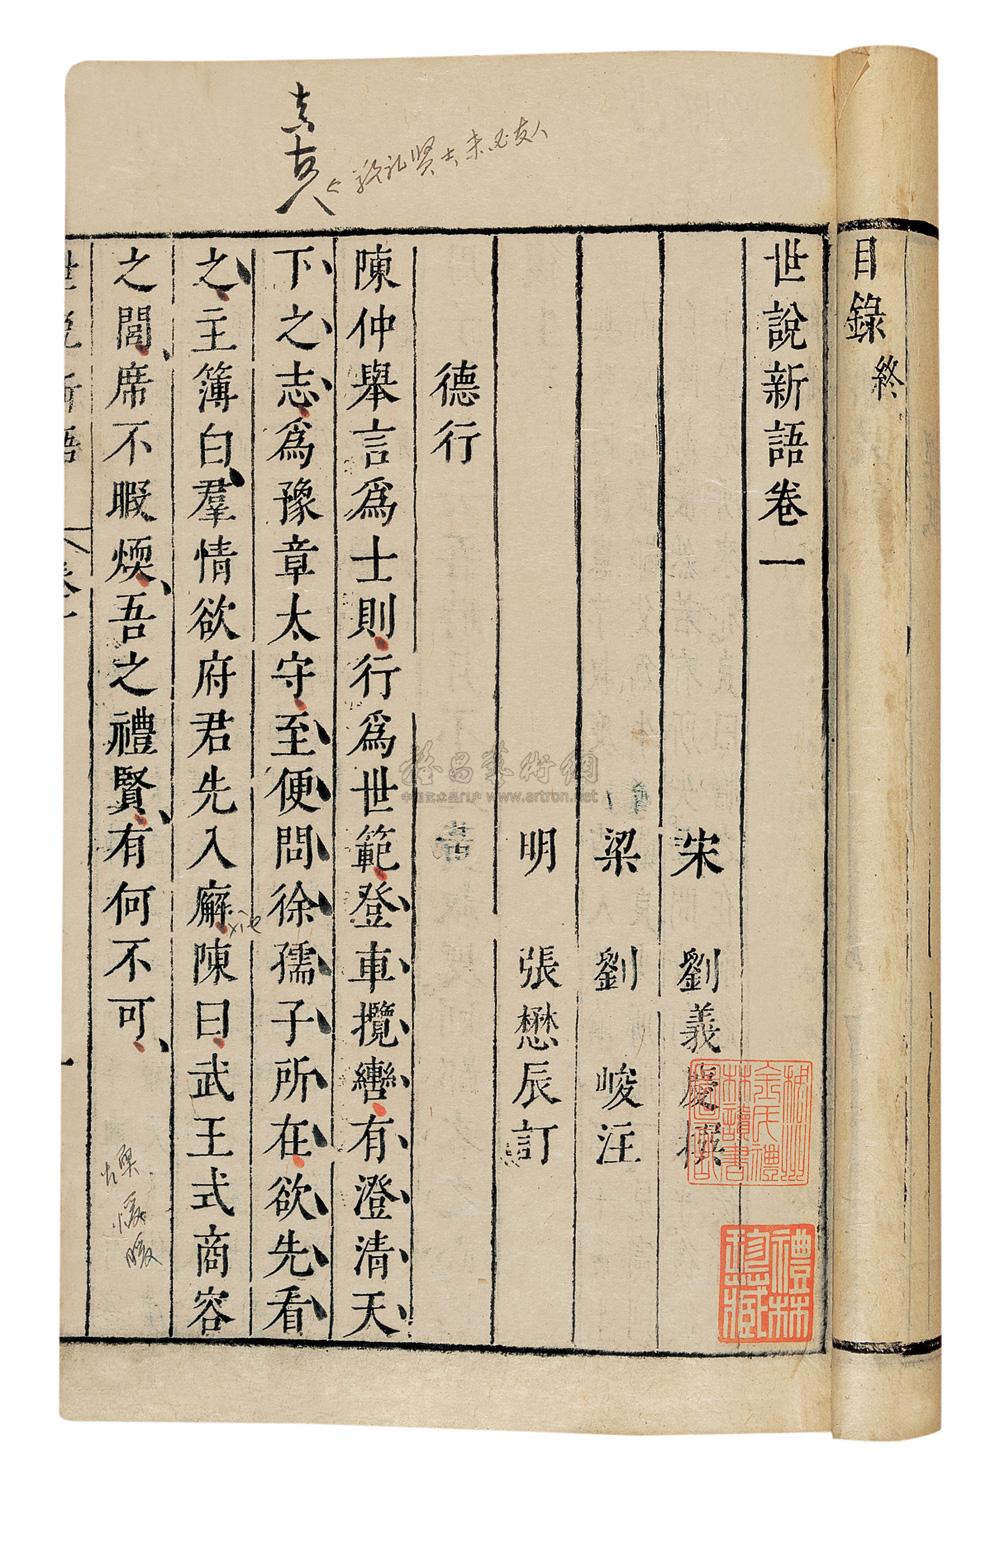 目錄終
世說新語卷一
宋 劉義慶撰
梁 劉峻注
明 張懋辰訂
德行
陳仲舉言為士則行為世範登車攬轡有澄清天
下之志為豫章太守至便問徐孺子所在欲先看
之主簿白羣情欲府君先入廨陳曰武王式商容
之閭席不暇煗吾之禮賢有何不可
世說新語 卷一
一
禮林珍藏
www.artron.net